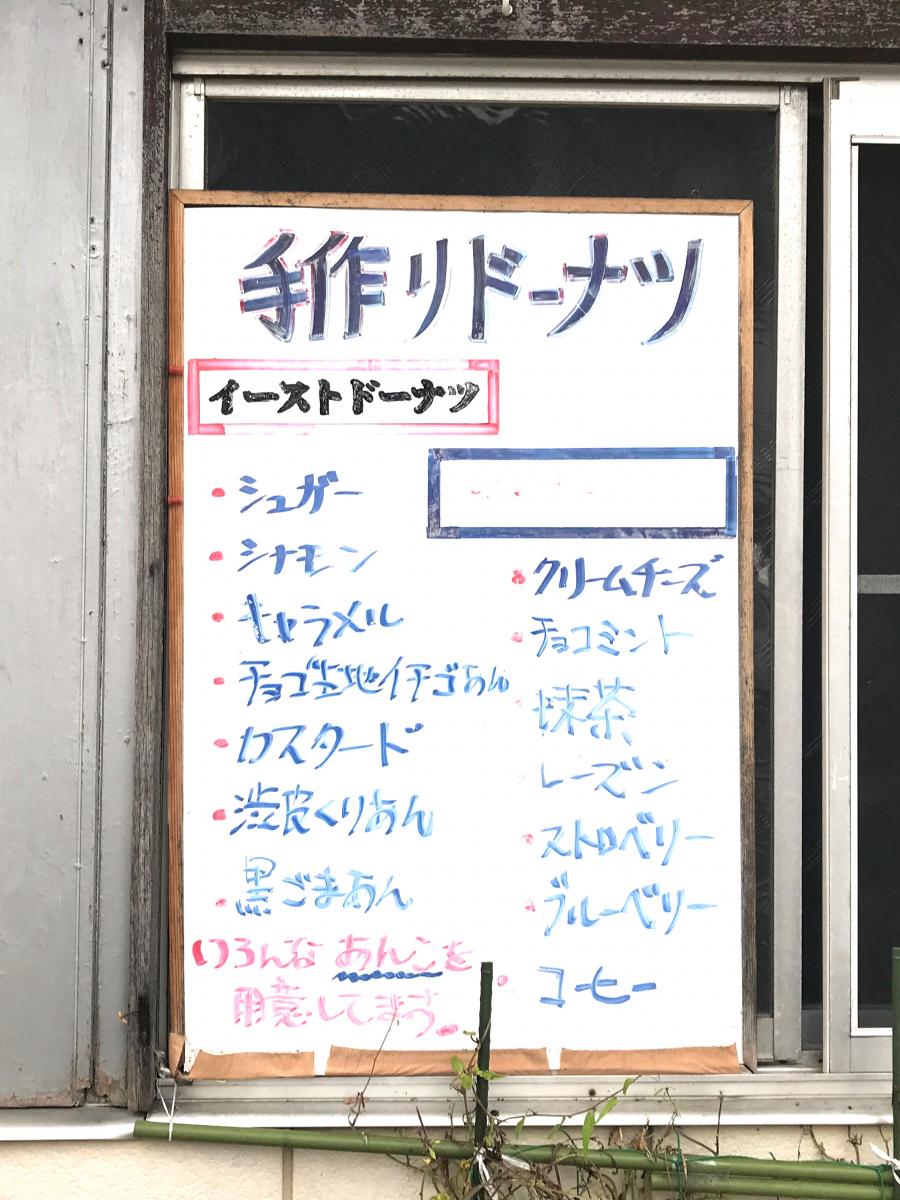 手作りドーナツ
イーストドーナツ
・シュガー
・シナモン
・キャラメル
・チョコ生地イチゴあん
・カスタード
・渋皮くりあん
・黒ごまあん
いろんなあんこを
用意してます。
・クリームチーズ
・チョコミント
・抹茶
レーズン
・ストロベリー
・ブルーベリー
・コーヒー